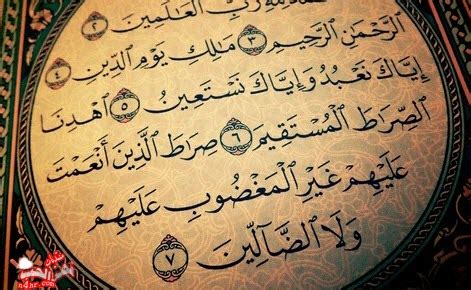 لله رب العالمين ٢
الرحمن الرحيم ٣ مالك يوم الدين ٤
إياك نعبد وإياك نستعين ٥ اهدنا
الصراط المستقيم ٦ صراط الذين أنعمت
عليهم غير المغضوب عليهم
ولا الضالين ٧
n4hr.com